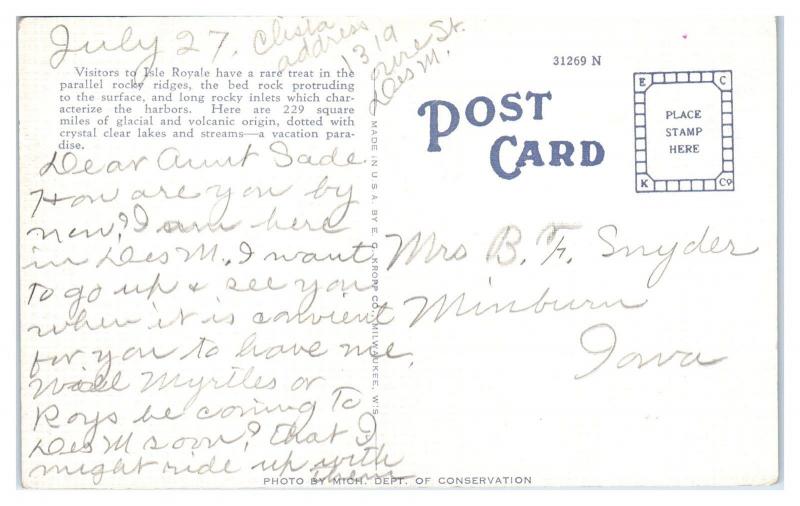 July 27,
Clista
address
1319
St.
Des M.
Visitors to Isle Royale have a rare treat in the
parallel rocky ridges, the bed rock protruding
to the surface, and long rocky inlets which char-
acterize the harbors. Here are 229 square
miles of glacial and volcanic origin, dotted with
crystal clear lakes and streams—a vacation para-
dise.
Dear Aunt Sade
How are you by
now? I am here
in Des M., I want
to go up & see you
when it is convient
for you to have me,
Will Myrtles or
Roys be coming to
Des M soon? that I
might ride up with
them
MADE IN U.S.A. BY E. C. KROPP CO., MILWAUKEE, WIS.
31269 N
POST
CARD
E C
PLACE
STAMP
HERE
K Co
Mrs B. F. Snyder
Minburn
Iowa
PHOTO BY MICH. DEPT. OF CONSERVATION